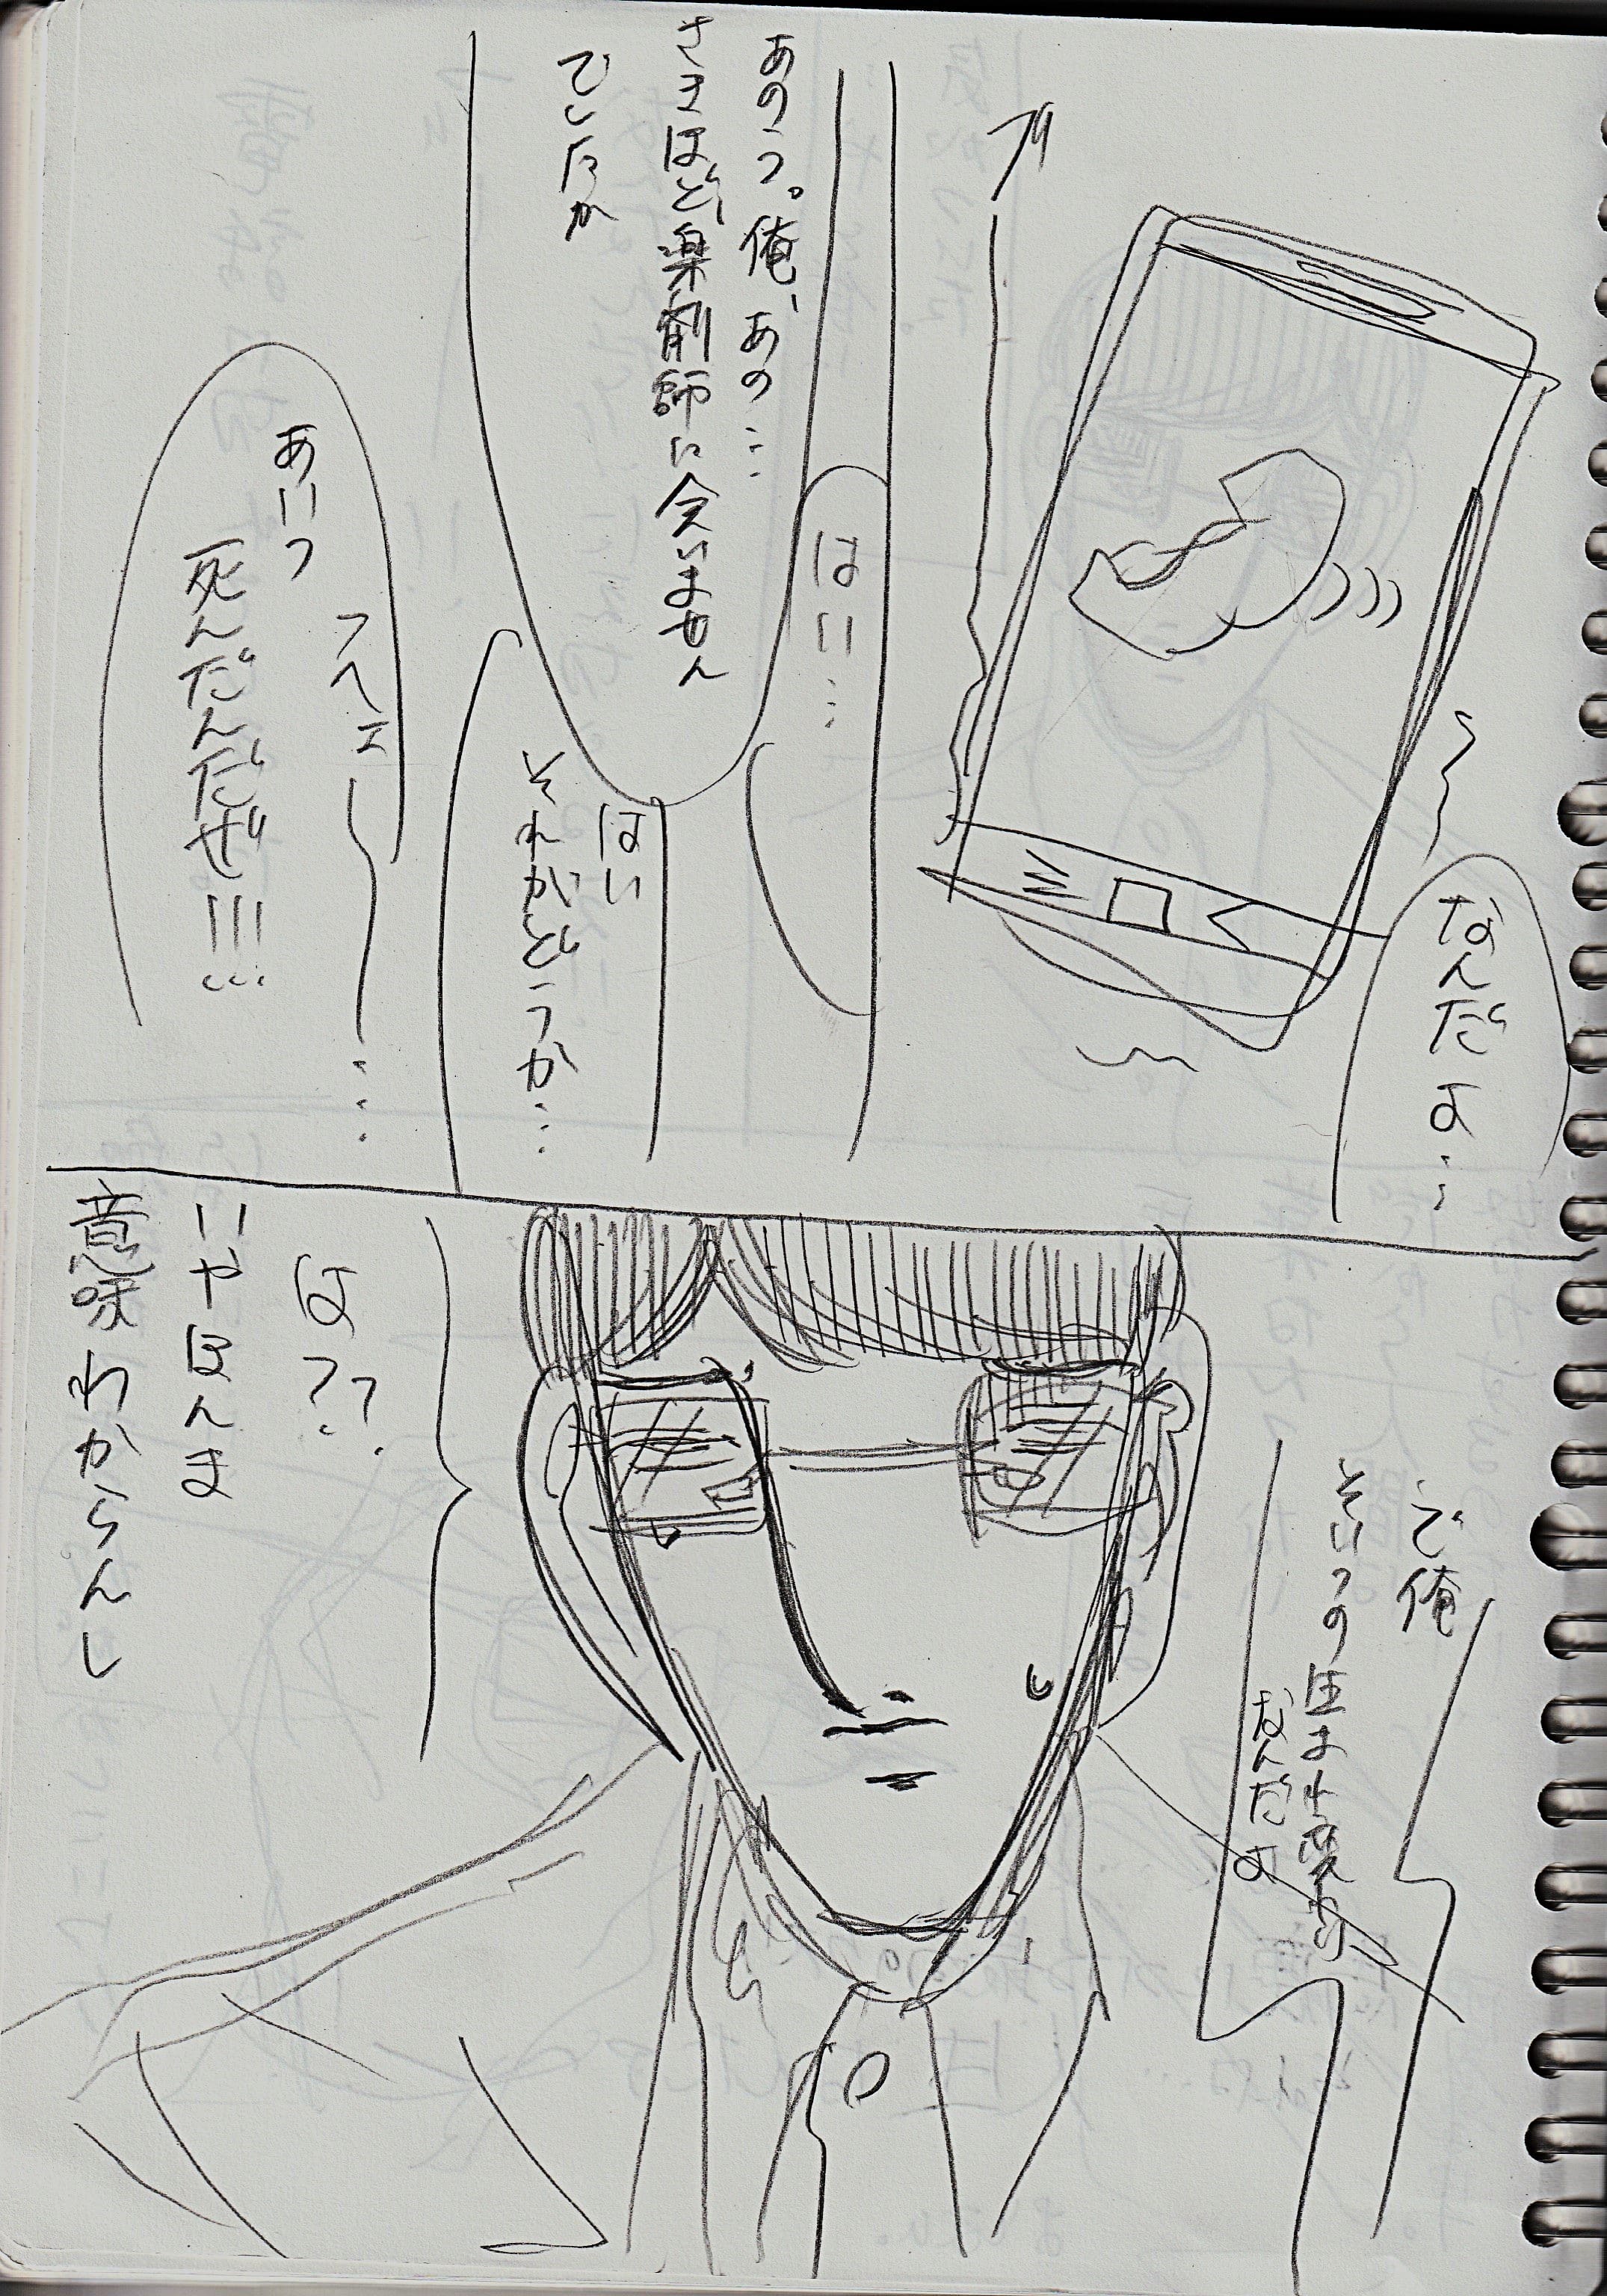 なんだよ…
はい…
あのっ。俺、あの…
さきほど、薬剤師に会いません
でしたか
はい
それがどうか…
つへエ
あいつ
死んだんだぜ!!!…
で俺
そいつの生まれ変わり
なんだよ
は??
いやほんま
意味わからんし